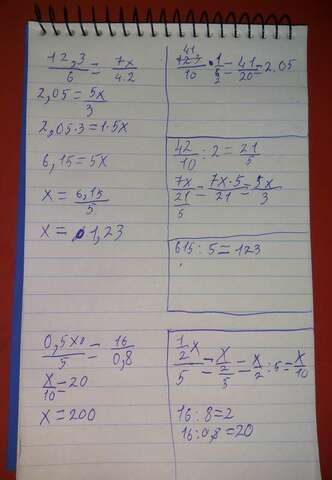 12,3/6 = 7x/4.2
2,05 = 5x/3
2,05·3 = 1·5x
6,15 = 5x
x = 6,15/5
x = 1,23
41
123/10 · 1/6 = 41/20 = 2.05
2
42/10 : 2 = 21/5
7x/(21/5) = 7x·5/21 = 5x/3
615 : 5 = 123
0,5x/5 = 16/0,8
x/10 = 20
x = 200
(1/2 x)/5 = (x/2)/5 = x/2 : 5 = x/10
16 : 8 = 2
16 : 0,8 = 20